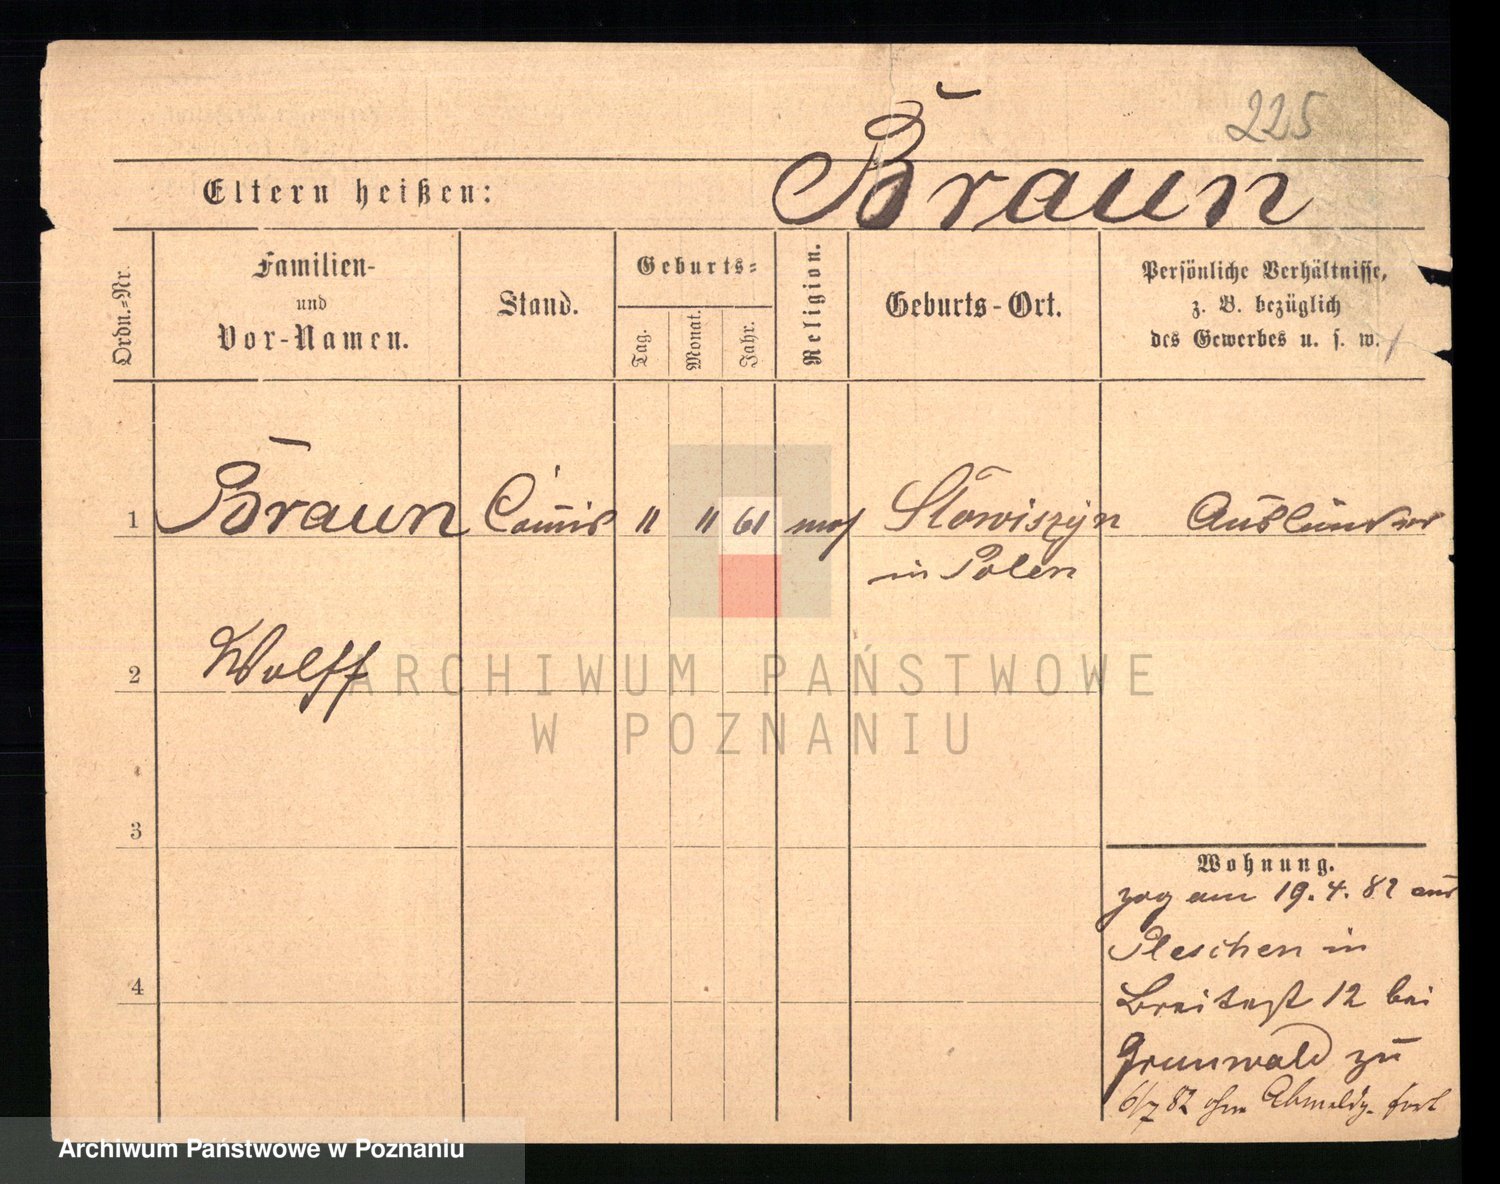 225
Braun
Eltern heißen:
Ordn.-Nr.
Familien-
und
Vor-Namen.
Stand.
Geburts-
Tag.
Monat.
Jahr.
Religion.
Geburts-Ort.
Persönliche Verhältnisse,
z. B. bezüglich
des Gewerbes u. s. w.
1 Braun Commis " " 61 mos Stawiszyn Ausländer
in Polen
2 Wolff
ARCHIWUM PAŃSTWOWE
W POZNANIU
3
Wohnung.
zog am 19. 4. 82 aus
Pleschen in
4
Breitestr 12 bei
Grunwald zu
6/7 82 ohne Abmeldg. fort
Archiwum Państwowe w Poznaniu